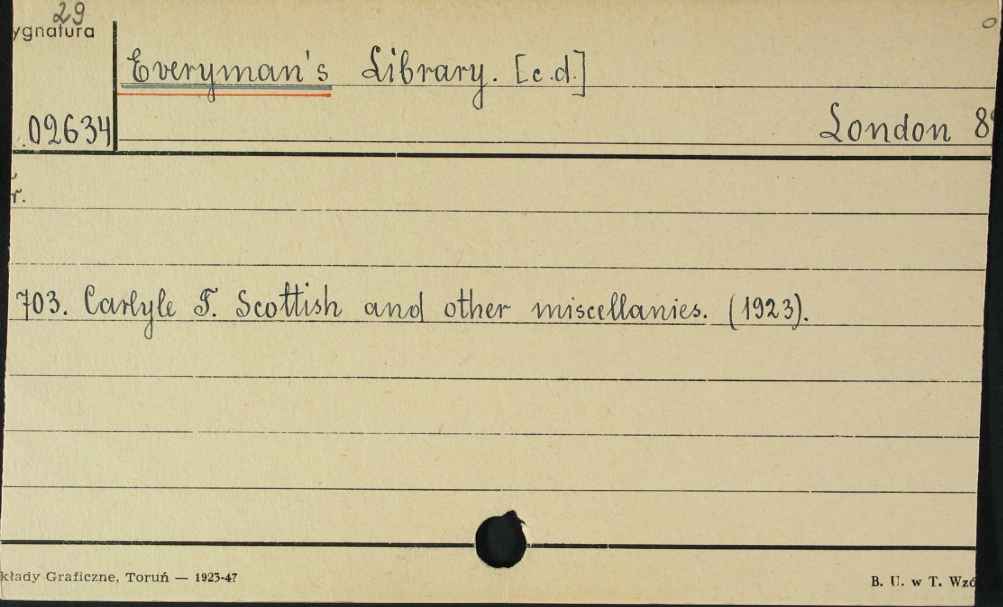 29
ygnatura
Everyman's Library. [c.d.]
02634
London 8
r.
703. Carlyle T. Scottish and other miscellanies. (1923).
kłady Graficzne, Toruń — 1923-47
B. U. w T. Wzó